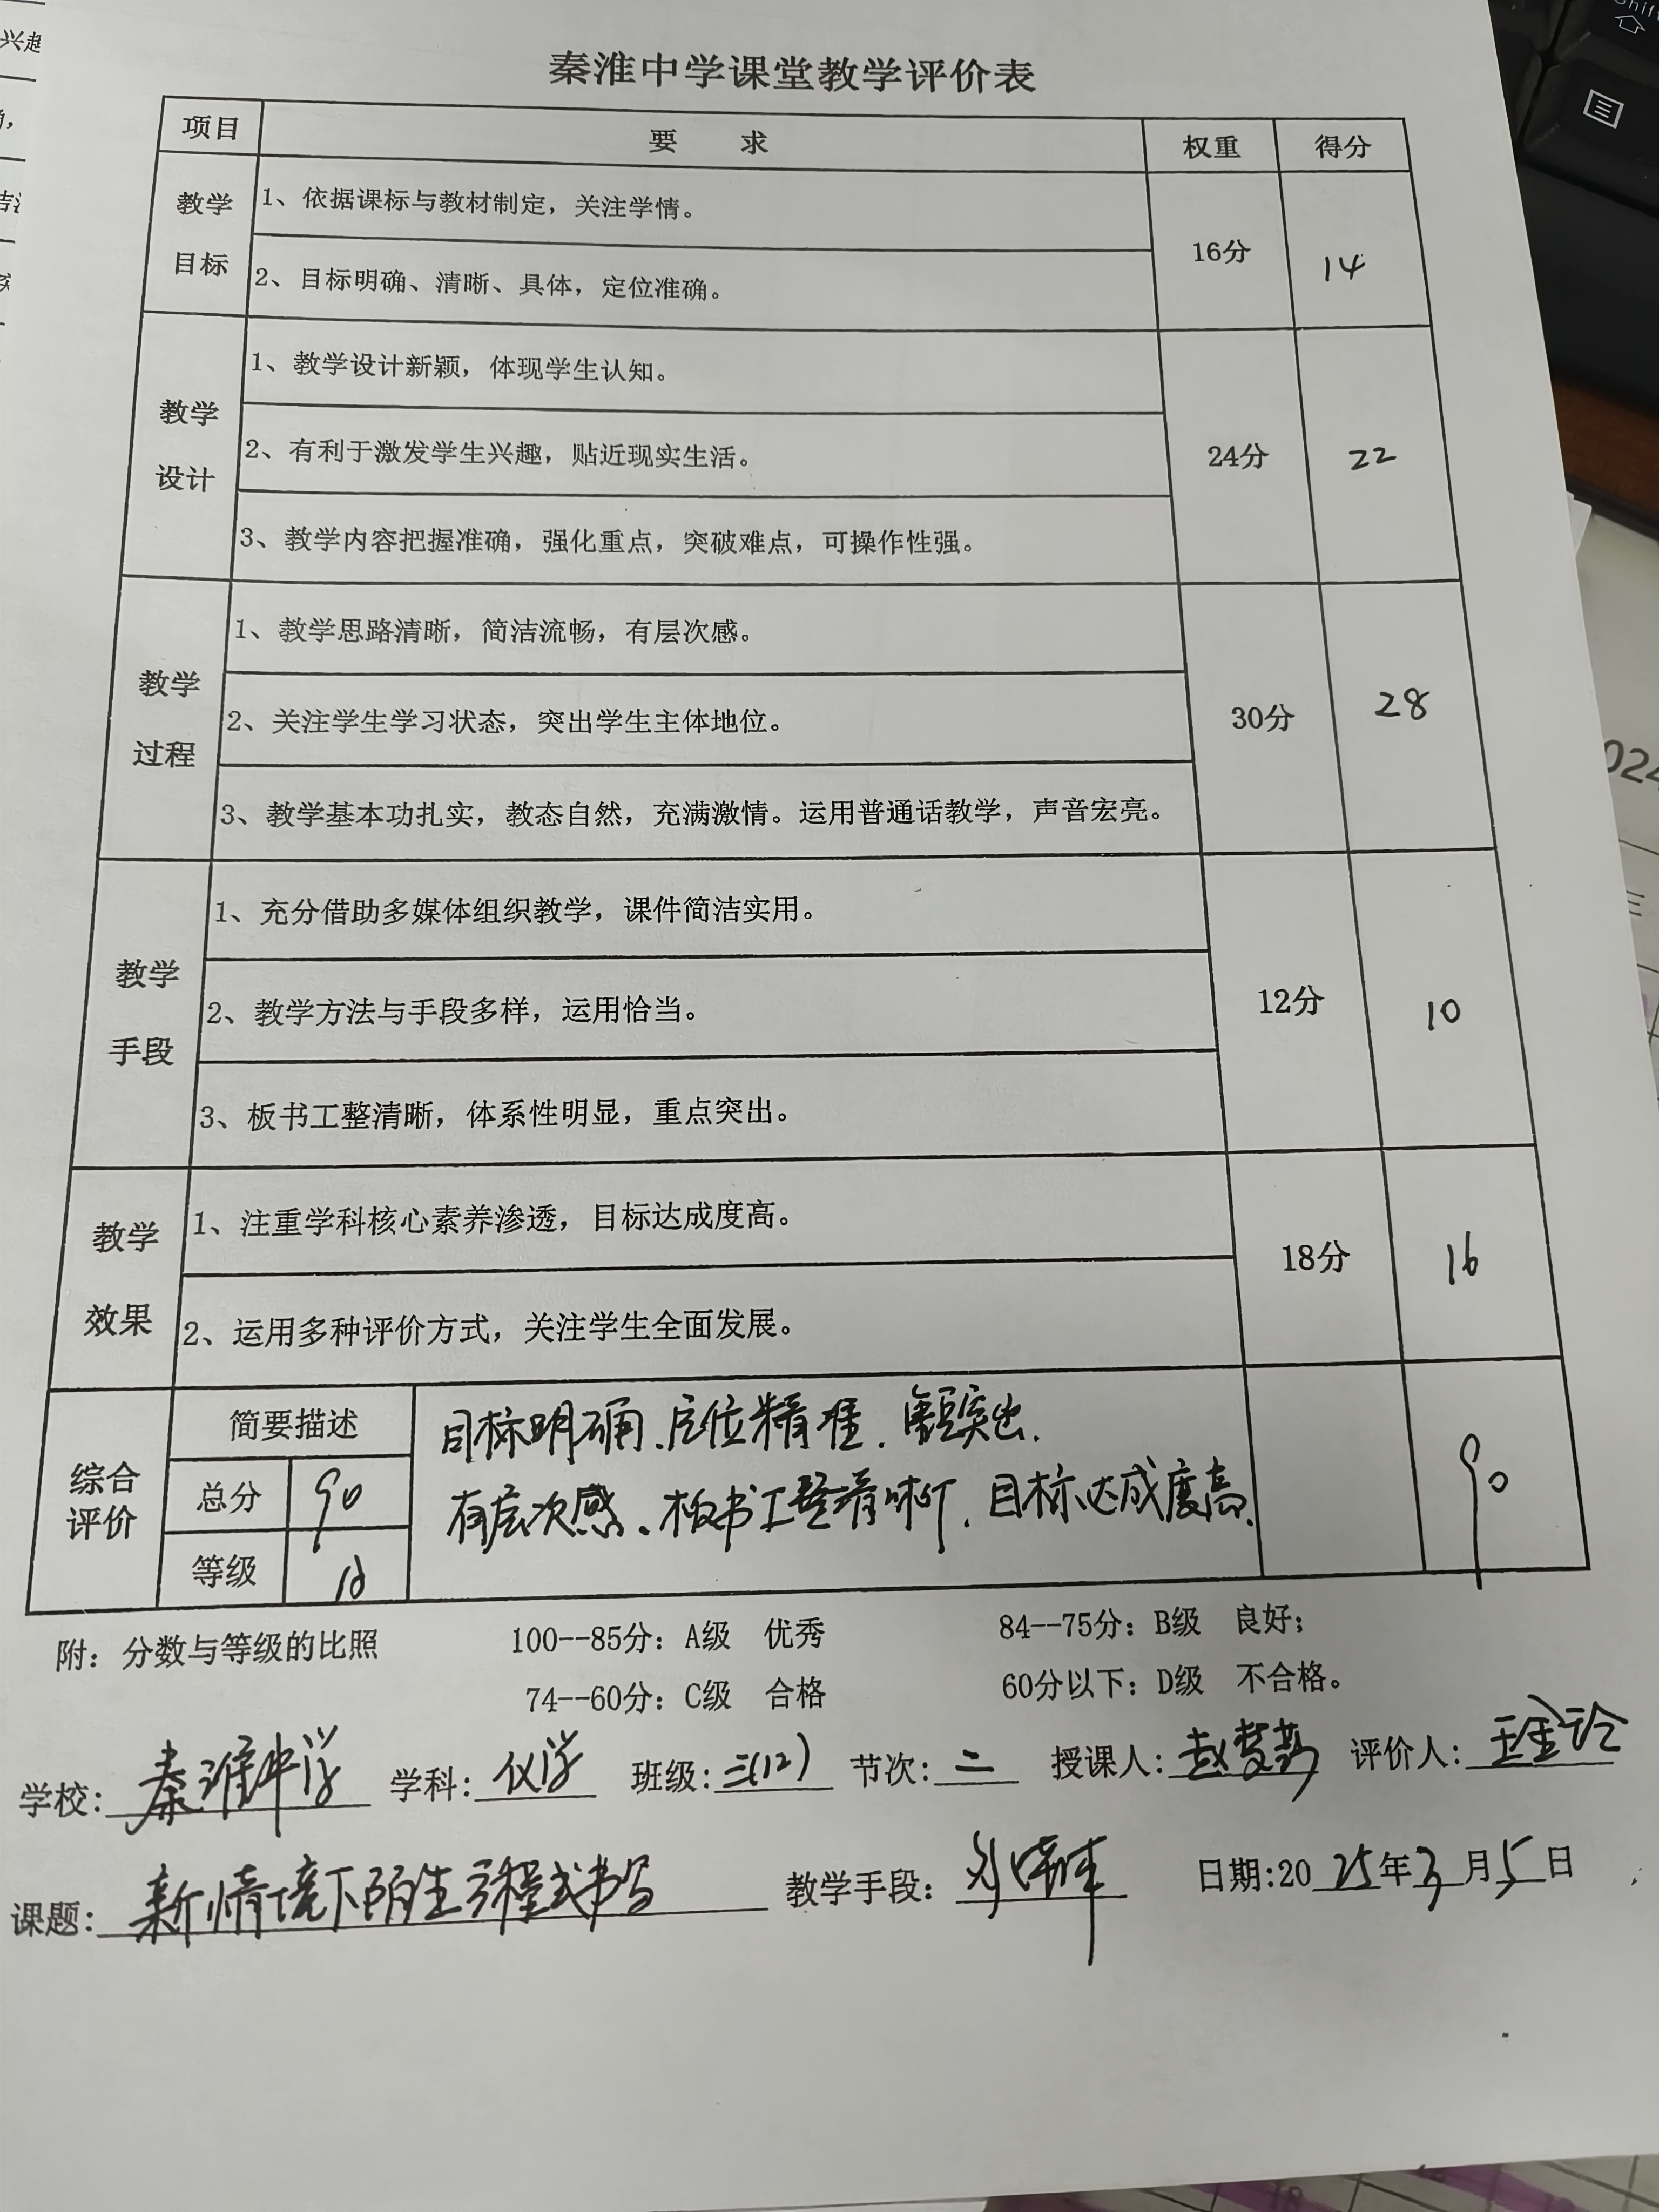 秦淮中学课堂教学评价表
项目 要 求 权重 得分
教学目标 1、依据课标与教材制定，关注学情。 16分 14
2、目标明确、清晰、具体，定位准确。
教学设计 1、教学设计新颖，体现学生认知。 24分 22
2、有利于激发学生兴趣，贴近现实生活。
3、教学内容把握准确，强化重点，突破难点，可操作性强。
教学过程 1、教学思路清晰，简洁流畅，有层次感。 30分 28
2、关注学生学习状态，突出学生主体地位。
3、教学基本功扎实，教态自然，充满激情。运用普通话教学，声音宏亮。
教学手段 1、充分借助多媒体组织教学，课件简洁实用。 12分 10
2、教学方法与手段多样，运用恰当。
3、板书工整清晰，体系性明显，重点突出。
教学效果 1、注重学科核心素养渗透，目标达成度高。 18分 16
2、运用多种评价方式，关注学生全面发展。
综合评价 简要描述 目标明确、定位精准、突出、 90
总分 90 有层次感、板书工整清晰、目标达成度高、
等级
附：分数与等级的比照 100--85分：A级 优秀 84--75分：B级 良好；
74--60分：C级 合格 60分以下：D级 不合格。
学校：秦淮中学 学科：化学 班级：三(12) 节次：二 授课人：赵梦 评价人：
课题：新情境下陌生方程式书写 教学手段： 日期:2025年3月5日